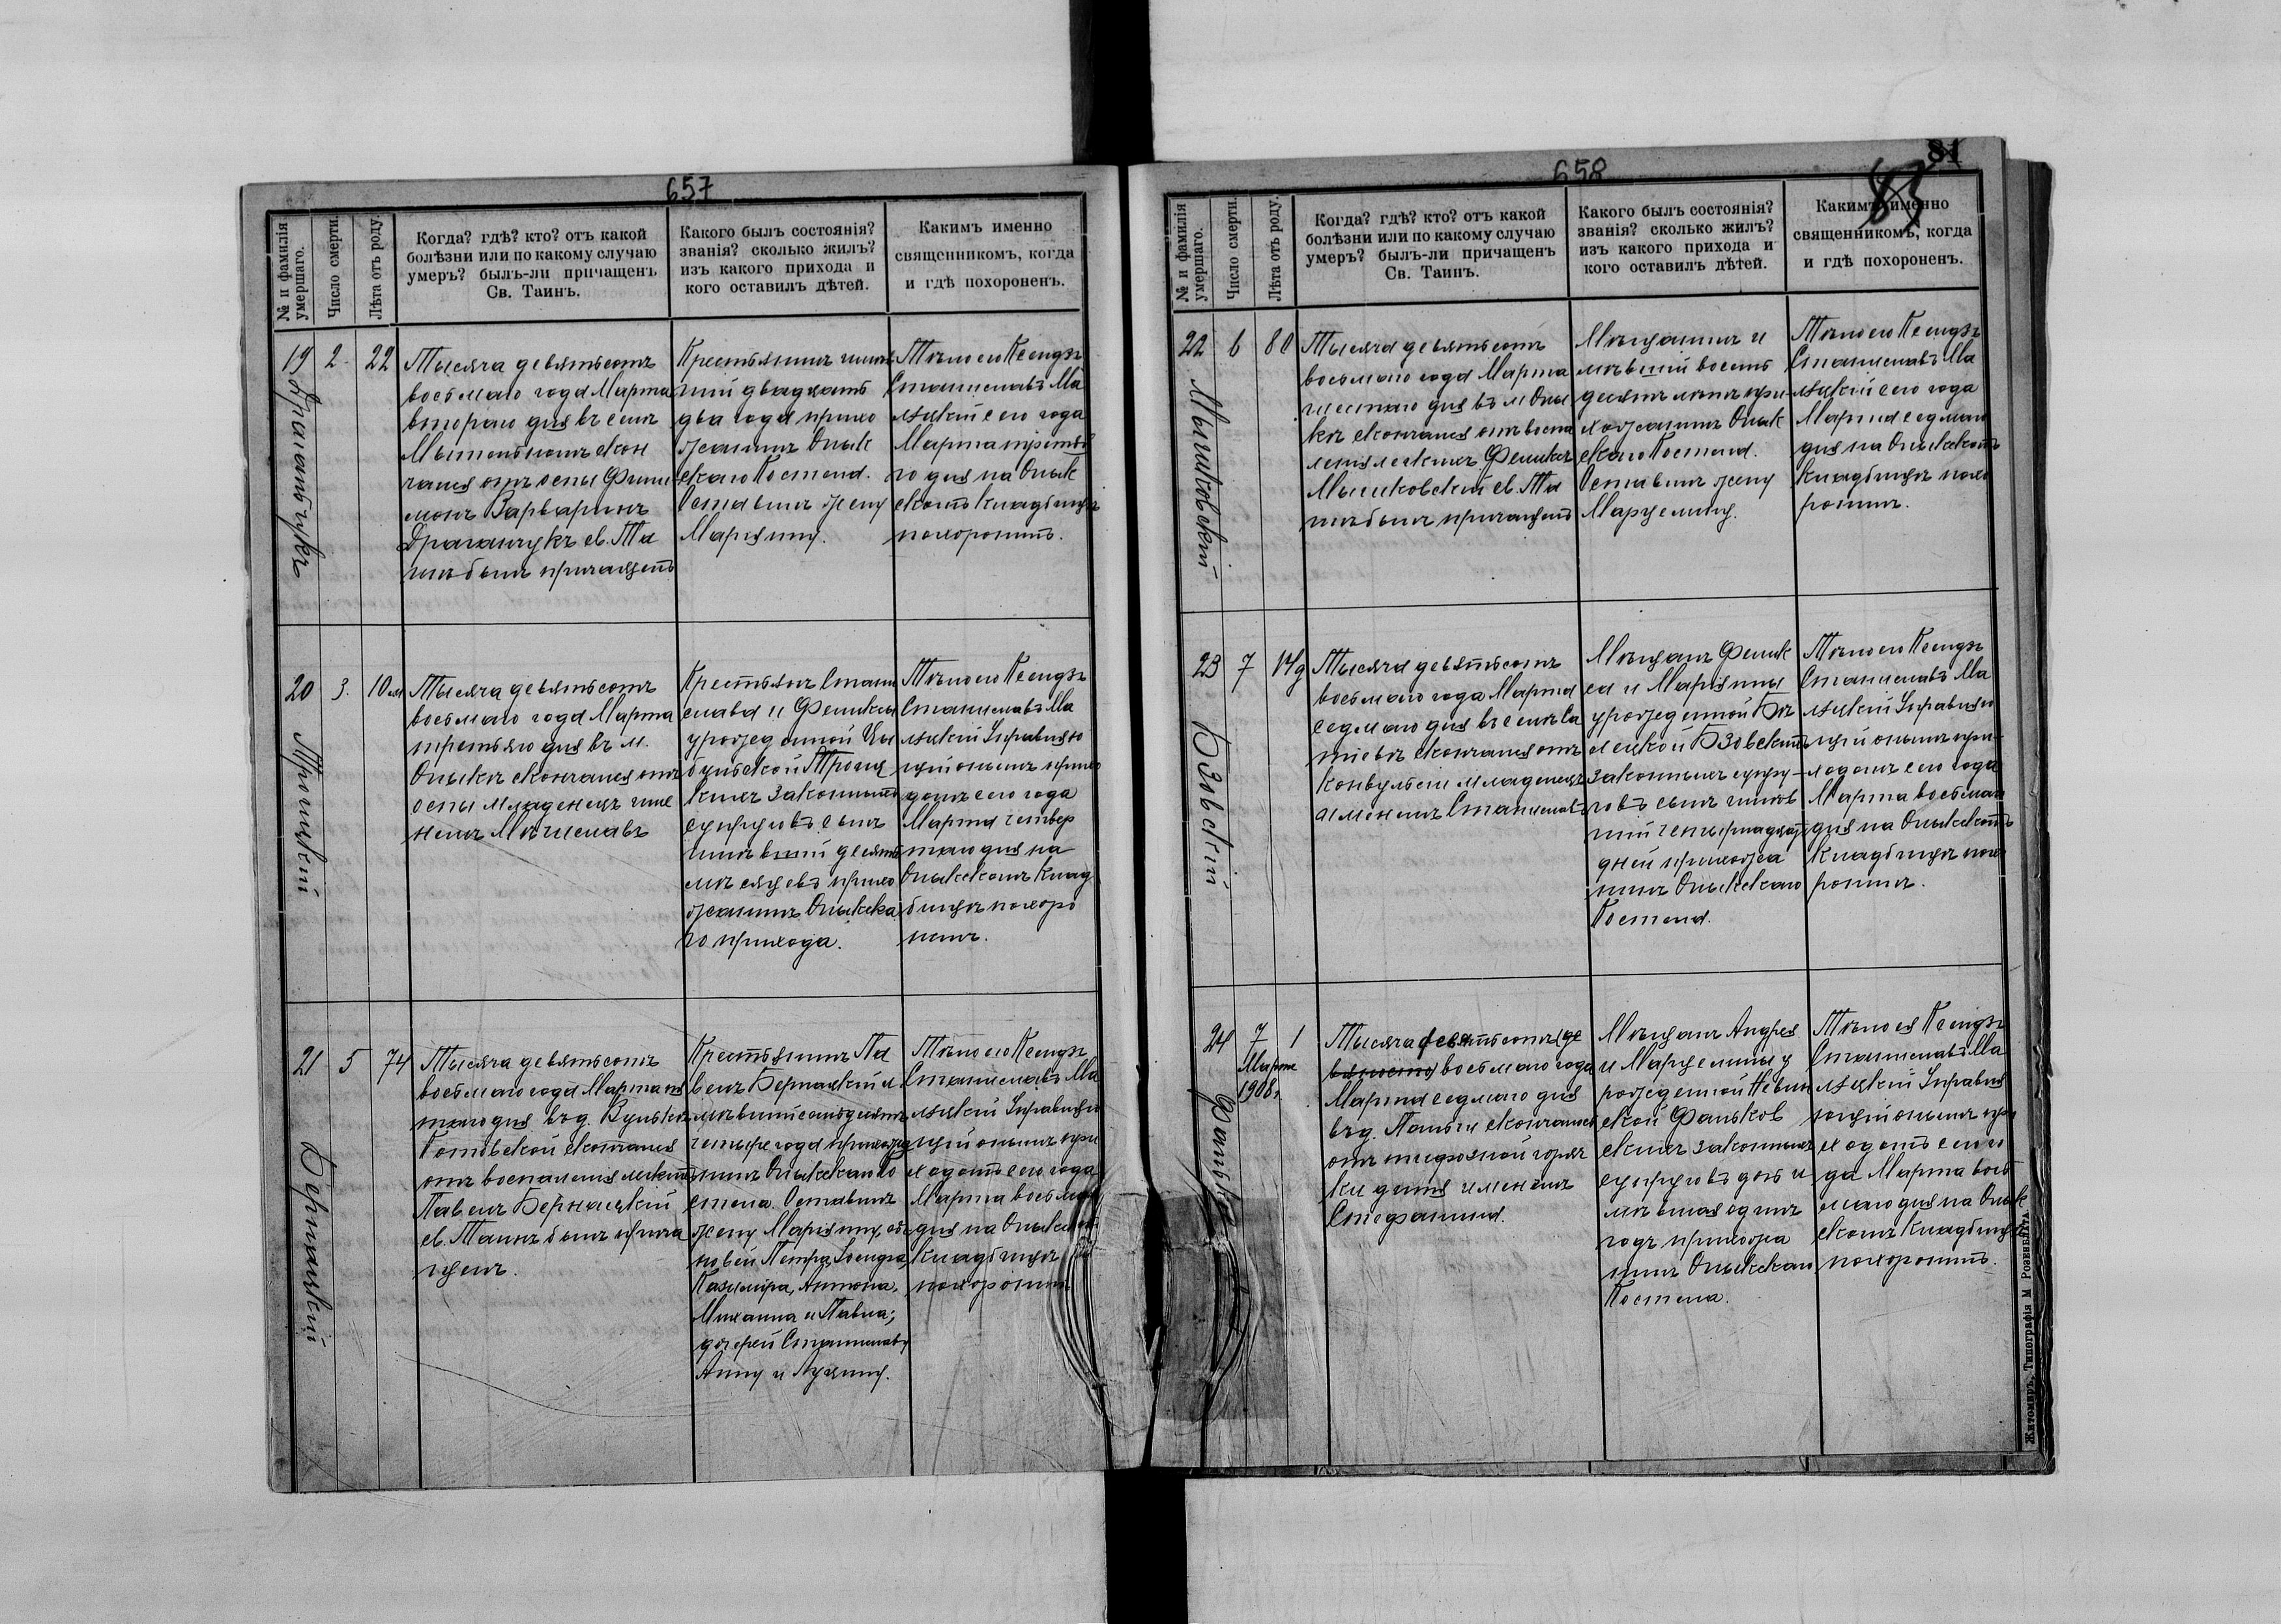 657
№ и фамилія умершаго.
Число смерти.
Лѣта отъ роду.
Когда? гдѣ? кто? отъ какой
болѣзни или по какому случаю
умеръ? былъ-ли причащенъ
Св. Таинъ.
Какого былъ состоянія?
званія? сколько жилъ?
изъ какого прихода и
кого оставилъ дѣтей.
Какимъ именно
священникомъ, когда
и гдѣ похороненъ.
19
Драганчукъ
2
22
Тысяча девятьсотъ
восьмаго года Марта
втораго дня въ селѣ
скон
чался отъ оспы
Варваринъ
Драганчукъ св. Та
инъ былъ причащенъ
Крестьянинъ
двадцать
два года прихо
жанинъ Олык
скаго Костела.
Оставилъ жену
Маріянну.
Тѣло его Ксендзъ
Станиславъ Ма
сего года
Марта третья
го дня на Олык
скомъ кладбищѣ
похоронилъ.
20
Троцкій
3.
10 м
Тысяча девятьсотъ
восьмаго года Марта
третьяго дня въ м.
Олыкѣ скончался отъ
оспы младенецъ име
немъ Мечиславъ
Крестьянъ Стани
слава и Феликсы
урожденной
законныхъ
супруговъ сынъ
десять
мѣсяцевъ прихо
жанинъ Олыкска
го прихода.
Тѣло его Ксендзъ
Станиславъ Ма
Управляю
щій онымъ прихо
домъ сего года
Марта четвер
таго дня на
Олыкскомъ клад
бищѣ похоро
нилъ.
21
Бернацкій
5
74
Тысяча девятьсотъ
восьмаго года Марта пя
таго дня въ д.
скончался
отъ воспаленія легкихъ
Павелъ Бернацкій
св. Таинъ былъ прича
щенъ.
Крестьянинъ Па
велъ Бернацкій и
мѣвшій семьдесятъ
четыре года прихожа
нинъ Олыкскаго Ко
стела. Оставилъ
жену Маріянну, сы
новей Петра, Іосифа,
Казиміра, Антона,
Михаила и Павла;
дочерей Станиславу,
Анну и Луцину.
Тѣло его Ксендзъ
Станиславъ Ма
Управляю
щій онымъ при
ходомъ сего года
Марта восьмаго
дня на Олыкскомъ
кладбищѣ
похоронилъ
658
81
83
№ и фамилія умершаго.
Число смерти.
Лѣта отъ роду.
Когда? гдѣ? кто? отъ какой
болѣзни или по какому случаю
умеръ? былъ-ли причащенъ
Св. Таинъ.
Какого былъ состоянія?
званія? сколько жилъ?
изъ какого прихода и
кого оставилъ дѣтей.
Какимъ именно
священникомъ, когда
и гдѣ похороненъ.
22
Мышковскій
6
80
Тысяча девятьсотъ
восьмаго года Марта
шестаго дня въ м Олы
кѣ скончался отъ воспа
ленія легкихъ Феликсъ
Мышковскій св. Та
инъ былъ причащенъ
Мѣщанинъ и
мѣвшій восемь
десятъ лѣтъ при
хожанинъ Олык
скаго Костела.
Оставилъ жену
Марцелину.
Тѣло его Ксендзъ
Станиславъ Ма
сего года
Марта седмаго
дня на Олыкскомъ
кладбищѣ похо
ронилъ.
23
Бзовскій
7
14д
Тысяча девятьсотъ
восьмаго года Марта
седмаго дня въ селѣ
скончался отъ
конвульсіи младенецъ
именемъ Станиславъ
Мѣщанъ Феликса
и Маріянны
урожденной
Бзовскихъ
законныхъ супру-
говъ сынъ
четырнадцать
дней прихожа
нинъ Олыкскаго
Костела.
Тѣло его Ксендзъ
Станиславъ Ма
Управляю
щій онымъ при-
ходомъ сего года
Марта восьмаго
дня на Олыкскомъ
кладбищѣ похо
ронилъ.
24
7
Марта
1908 г.
1
Тысяча девятьсотъ
восьмаго года
Марта седмаго дня
въ д. скончалась
отъ тифозной горяч
ки дитя именемъ
Стефанія.
Мѣщанъ Андрея
и Марцелины у
рожденной
законныхъ
супруговъ дочь и
мѣвшая одинъ
годъ прихожа
нинъ Олыкскаго
Костела.
Тѣло ея Ксендзъ
Станиславъ Ма
Управля
ющій онымъ при
ходомъ сего го
да Марта вось
маго дня на Олык
скомъ кладбищѣ
похоронилъ.
Житомиръ, Типографія М Розенблата